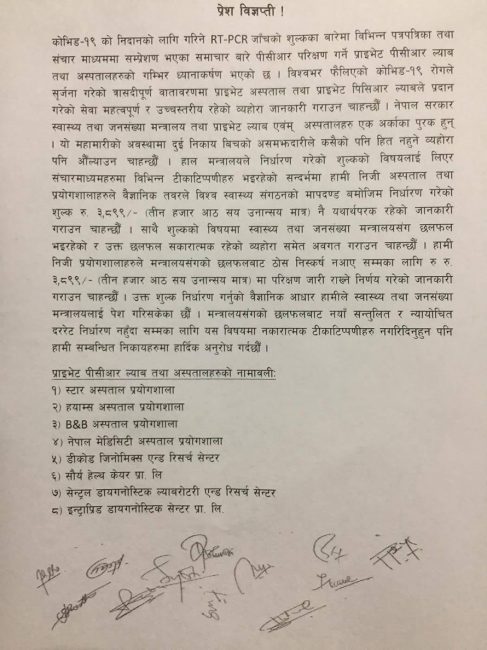 प्रेश विज्ञप्ती !
कोभिड-१९ को निदानको लागि गरिने RT-PCR जाँचको शुल्कका बारेमा विभिन्न पत्रपत्रिका तथा
संचार माध्यममा सम्प्रेशण भएका समाचार बारे पीसीआर परिक्षण गर्ने प्राइभेट पीसीआर ल्याब
तथा अस्पतालहरुको गम्भिर ध्यानाकर्षण भएको छ । विश्वभर फैलिएको कोभिड-१९ रोगले
सृर्जना गरेको त्रासदीपूर्ण वातावरणमा प्राइभेट अस्पताल तथा प्राइभेट पिसिआर ल्याबले प्रदान
गरेको सेवा महत्वपूर्ण र उच्चस्तरीय रहेको व्यहोरा जानकारी गराउन चाहन्छौँ । नेपाल सरकार
स्वास्थ्य तथा जनसंख्या मन्त्रालय तथा प्राइभेट ल्याब एवंम् अस्पतालहरु एक अर्काका पुरक हुन्
। यो महामारीको अवस्थामा दुई निकाय बिचको असमझदारीले कसैको पनि हित नहुने व्यहोरा
पनि औंल्याउन चाहन्छौँ । हाल मन्त्रालयले निर्धारण गरेको शुल्कको विषयलाई लिएर
संचारमाध्यमहरुमा विभिन्न टीकाटिप्पणीहरु भइरहेको सन्दर्भमा हामी निजी अस्पताल तथा
प्रयोगशालाहरुले वैज्ञानिक तवरले विश्व स्वास्थ्य संगठनको मापदण्ड बमोजिम निर्धारण गरेको
शुल्क रु. ३,८९९/- (तीन हजार आठ सय उनान्सय मात्र) नै यथार्थपरक रहेको जानकारी
गराउन चाहन्छौँ । साथै शुल्कको विषयमा स्वास्थ्य तथा जनसंख्या मन्त्रालयसंग छलफल
भइरहेको र उक्त छलफल सकारात्मक रहेको व्यहोरा समेत अवगत गराउन चाहन्छौँ । हामी
निजी प्रयोगशालाहरुले मन्त्रालयसंगको छलफलबाट ठोस निस्कर्ष नआए सम्मका लागि रु रु.
३,८९९/- (तीन हजार आठ सय उनान्सय मात्र) मा परिक्षण जारी राख्ने निर्णय गरेको जानकारी
गराउन चाहन्छौँ । उक्त शुल्क निर्धारण गर्नुको वैज्ञानिक आधार हामीले स्वास्थ्य तथा जनसंख्या
मन्त्रालयलाई पेश गरिसकेका छौँ । मन्त्रालयसंगको छलफलबाट नयाँ सन्तुलित र न्यायोचित
दररेट निर्धारण नहुँदा सम्मका लागि यस विषयमा नकारात्मक टीकाटिप्पणीहरु नगरिदिनुहुन पनि
हामी सम्बन्धित निकायहरुमा हार्दिक अनुरोध गर्दछौँ ।
प्राइभेट पीसीआर ल्याब तथा अस्पतालहरुको नामावली:
१) स्टार अस्पताल प्रयोगशाला
२) ह्याम्स अस्पताल प्रयोगशाला
३) B&B अस्पताल प्रयोगशाला
४) नेपाल मेडिसिटी अस्पताल प्रयोगशाला
५) डीकोड जिनोमिक्स एन्ड रिसर्च सेन्टर
६) सौर्य हेल्थ केयर प्रा. लि
७) सेन्ट्रल डायगनोस्टिक ल्याबरोटरी एन्ड रिसर्च सेन्टर
८) इन्ट्राप्रिड डायगनोस्टिक सेन्टर प्रा. लि.